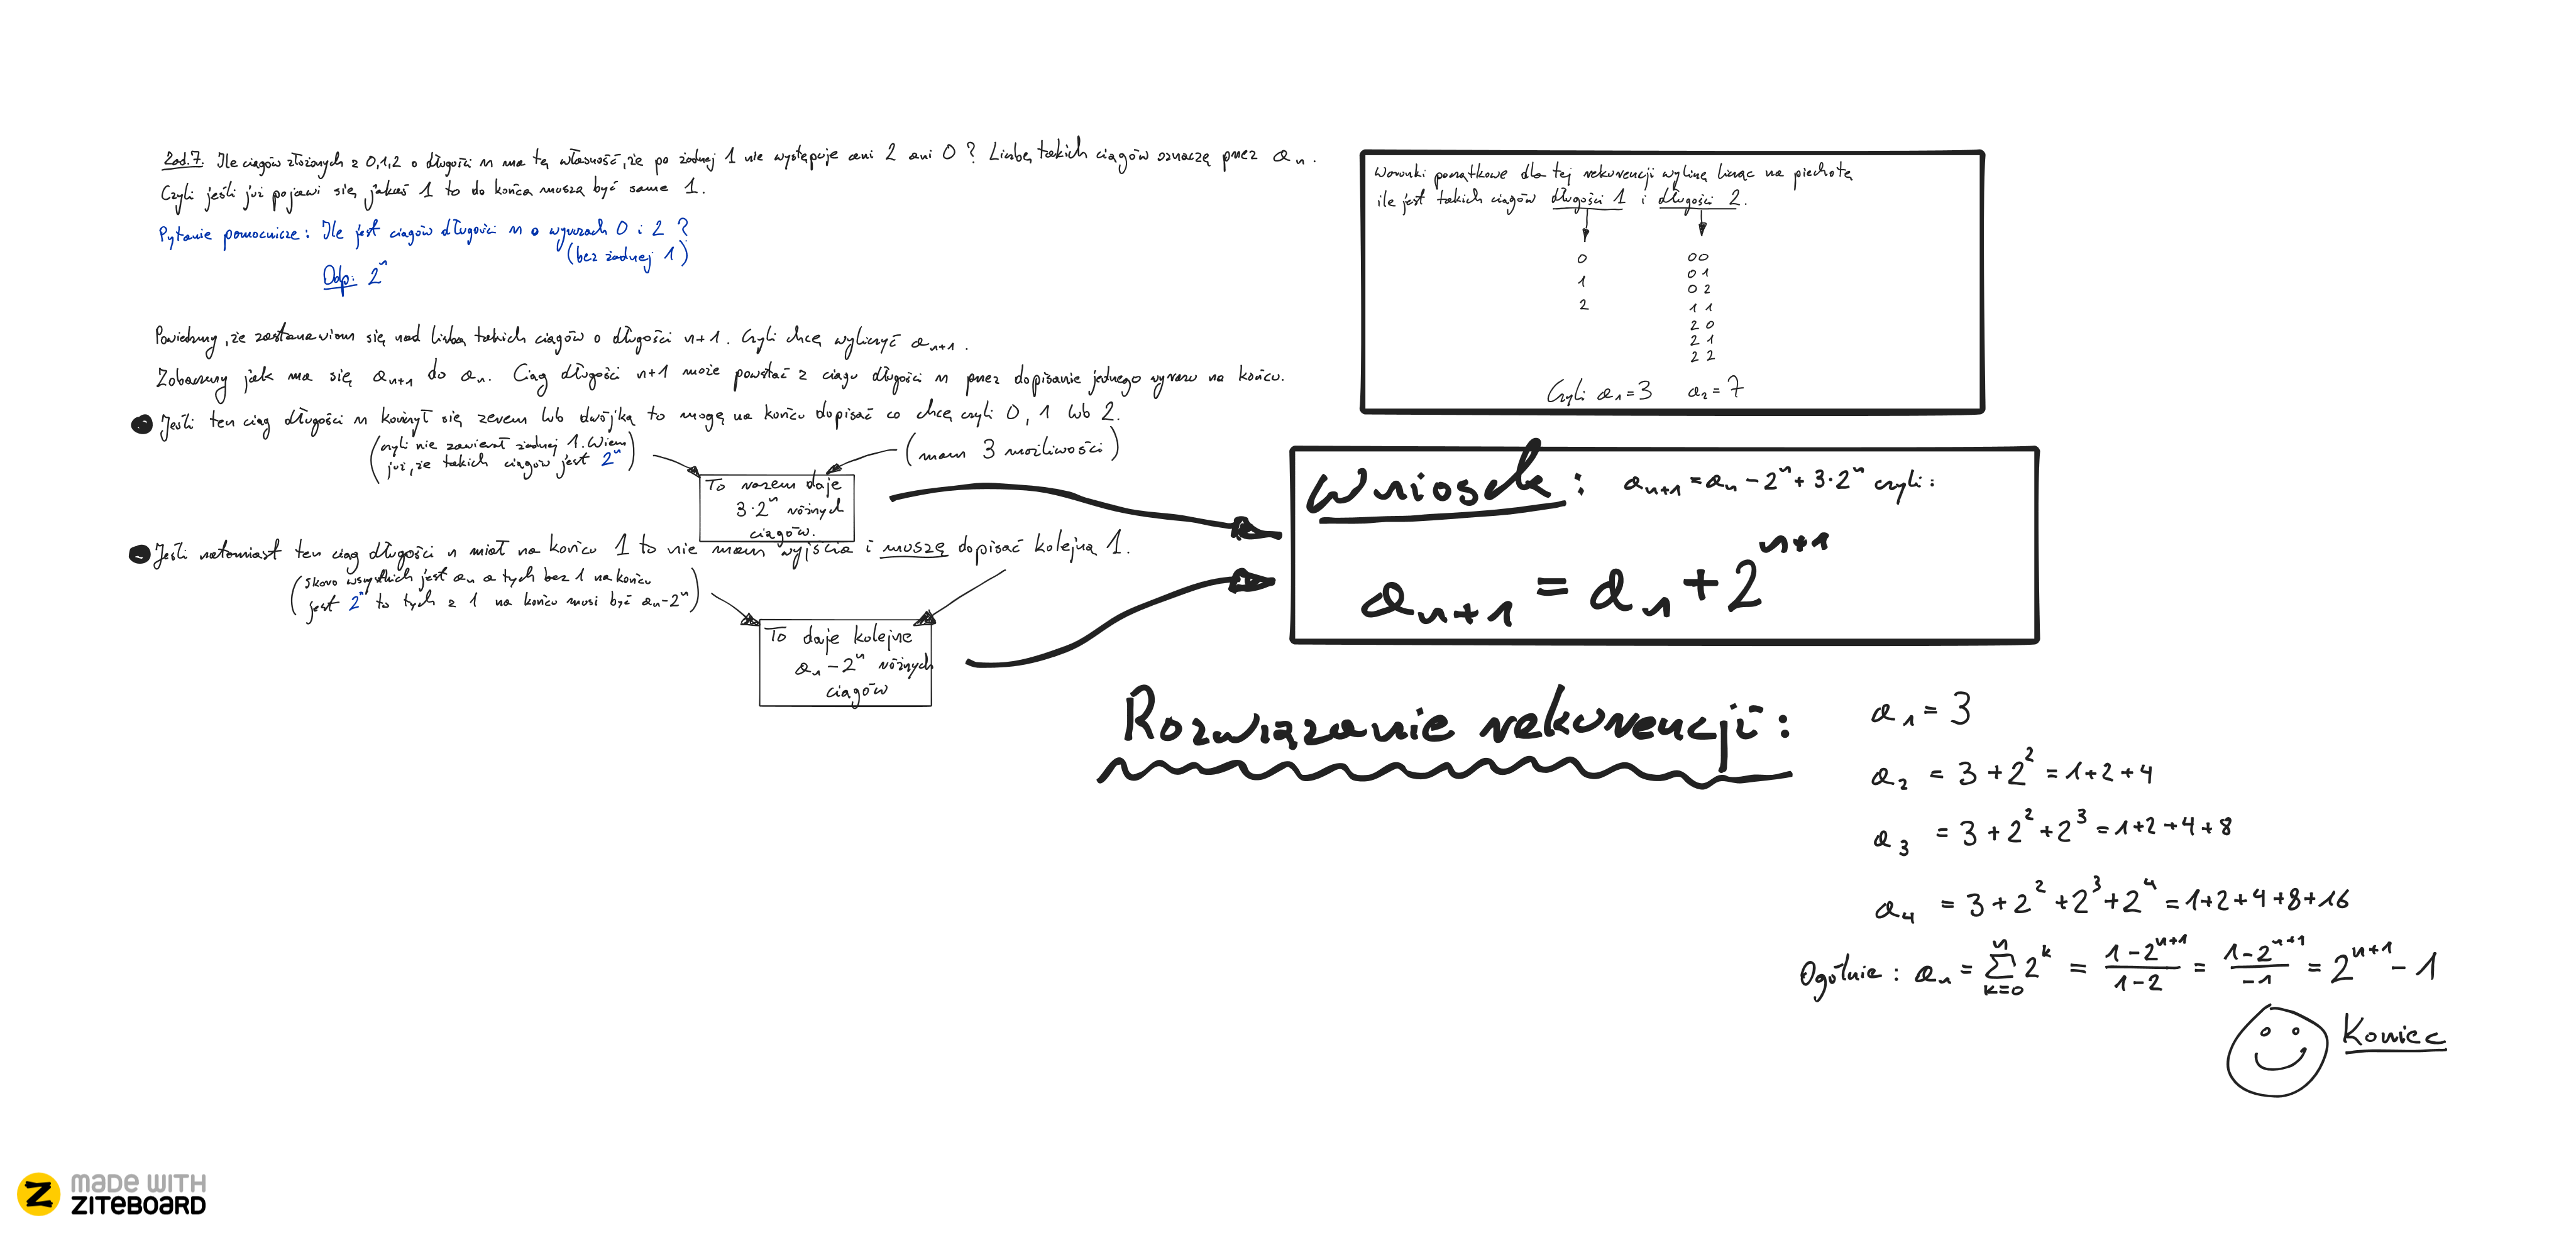 Zad.7. Ile ciągów złożonych z 0,1,2 o długości n ma tę własność, że po żadnej 1 nie występuje ani 2 ani 0? Liczbę takich ciągów oznaczę przez aₙ.
Czyli jeśli już pojawi się jakaś 1 to do końca muszą być same 1.
Pytanie pomocnicze: Ile jest ciągów długości n o wyrazach 0 i 2?
(bez żadnej 1)
Odp: 2ⁿ
Powiedzmy, że zastanawiam się nad liczbą takich ciągów o długości n+1. Czyli chcę wyliczyć aₙ₊₁.
Zobaczmy jak ma się aₙ₊₁ do aₙ. Ciąg długości n+1 może powstać z ciągu długości n przez dopisanie jednego wyrazu na końcu.
Jeśli ten ciąg długości n kończył się zerem lub dwójką to mogę na końcu dopisać co chcę czyli 0, 1 lub 2.
(czyli nie zawierał żadnej 1. Wiem
już, że takich ciągów jest 2ⁿ)
(mam 3 możliwości)
To razem daje
3·2ⁿ różnych
ciągów.
Jeśli natomiast ten ciąg długości n miał na końcu 1 to nie mam wyjścia i muszę dopisać kolejną 1.
(skoro wszystkich jest aₙ a tych bez 1 na końcu
jest 2ⁿ to tych z 1 na końcu musi być aₙ-2ⁿ)
To daje kolejne
aₙ-2ⁿ różnych
ciągów
Warunki początkowe dla tej rekurencji wyliczę licząc na piechotę
ile jest takich ciągów długości 1 i długości 2.
0
1
2
00
01
02
11
20
21
22
Czyli a₁=3 a₂=7
Wniosek: aₙ₊₁=aₙ-2ⁿ+3·2ⁿ czyli:
aₙ₊₁=aₙ+2ⁿ⁺¹
Rozwiązanie rekurencji:
a₁=3
a₂=3+2²=1+2+4
a₃=3+2²+2³=1+2+4+8
a₄=3+2²+2³+2⁴=1+2+4+8+16
Ogólnie: aₙ=∑ₖ₌₀ⁿ2ᵏ=(1-2ⁿ⁺¹)/(1-2)=(1-2ⁿ⁺¹)/(-1)=2ⁿ⁺¹-1
Koniec
MADE WITH
ZITEBOARD